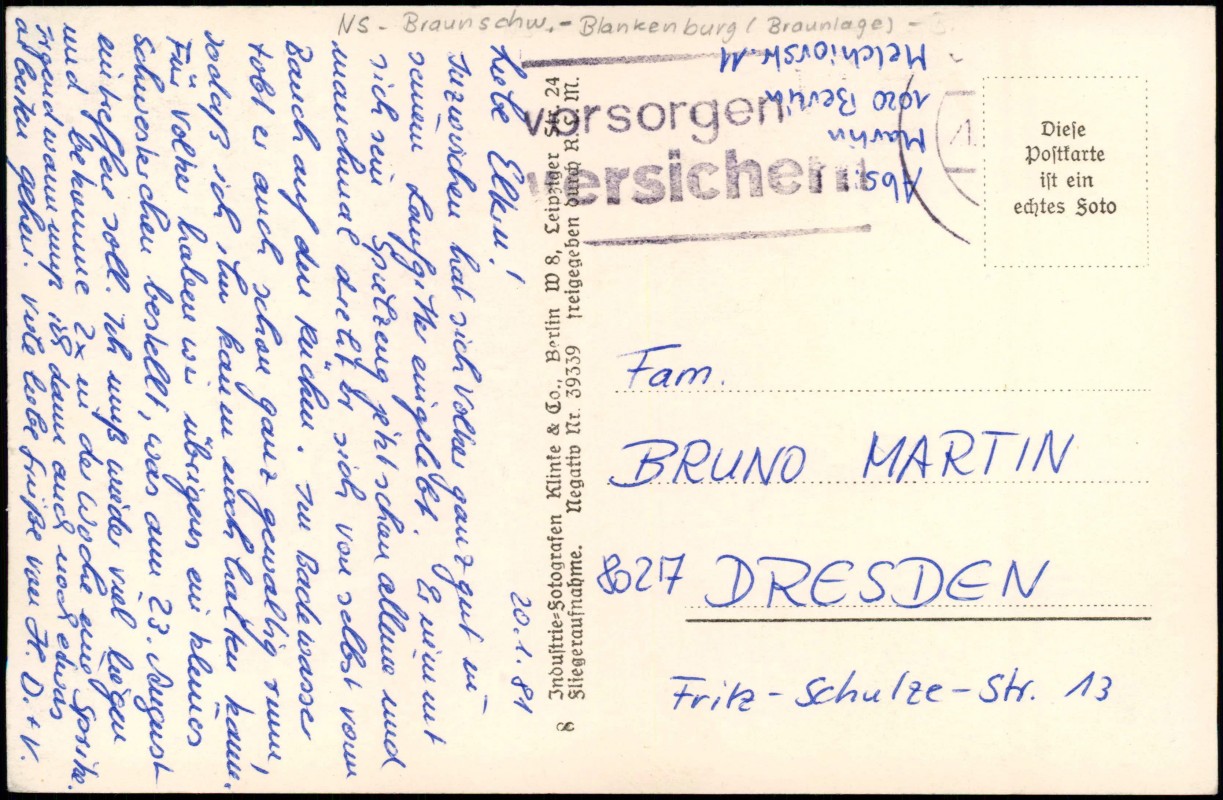 NS - Braunschw. - Blankenburg (Braunlage) -
20.1.81
Liebe Eltern!
Inzwischen hat sich Volker ganz gut in
seinem Laufgitter eingelebt. Er nimmt
sich sein Spielzeug jetzt schon alleine und
manchmal dreht er sich von selbst vom
Bauch auf den Rücken. Im Badewasser
tobt er auch schon ganz gewaltig rum,
sodaß ich ihn kaum noch halten kann.
Für Volker haben wir übrigens ein kleines
Schwesterchen bestellt, was am 23. August
eintreffen soll. Ich muß wieder viel liegen
und bekomme 2x in der Woche eine Spritze.
Irgendwann muß ich dann auch noch etwas
arbeiten gehen. Viele liebe Grüße von H. D. + V.
8 Industrie-Fotografen Klinke & Co., Berlin W 8, Leipziger Str. 24
Fliegeraufnahme. Negativ Nr. 39339 freigegeben durch R.L.M.
vorsorgen
versichern
Abs.
Martin
1020 Berlin
Melchiorstr. 11
Diese
Postkarte
ist ein
echtes Foto
Fam.
BRUNO MARTIN
8027 DRESDEN
Fritz-Schulze-Str. 13